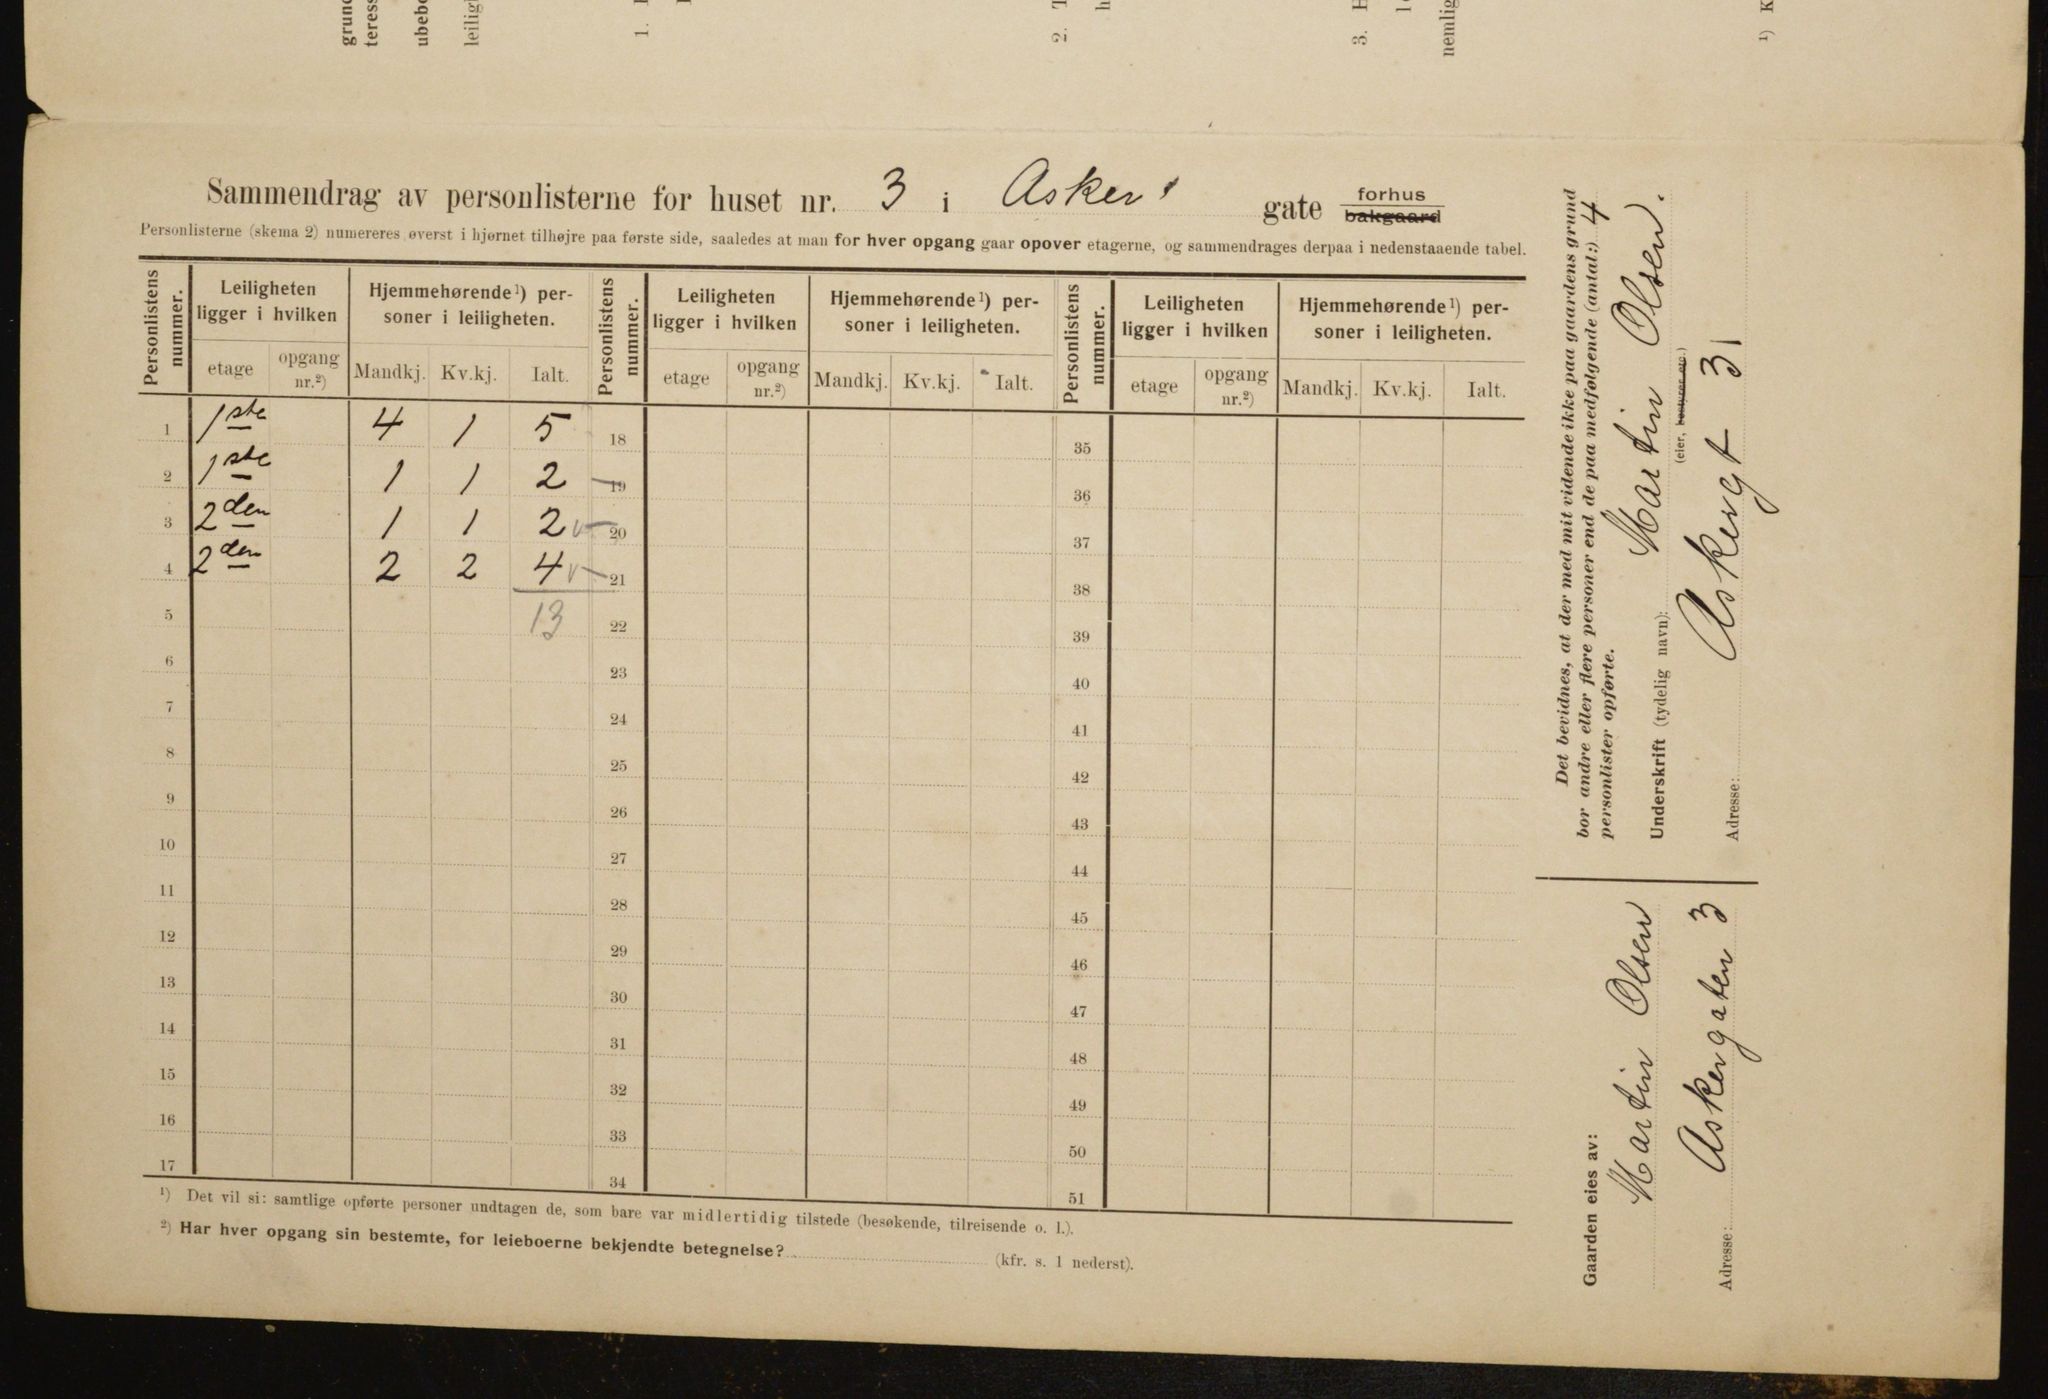 Sammendrag av personlisterne for huset nr. 3 i Asker gate forhus
bakgaard
Personlisterne (skema 2) numereres øverst i hjørnet tilhøjre paa første side, saaledes at man for hver opgang gaar opover etagerne, og sammendrages derpaa i nedenstaaende tabel.
Personlistens nummer. Leiligheten ligger i hvilken Hjemmehørende ¹) personer i leiligheten. Personlistens nummer. Leiligheten ligger i hvilken Hjemmehørende ¹) personer i leiligheten. Personlistens nummer. Leiligheten ligger i hvilken Hjemmehørende ¹) personer i leiligheten.
etage opgang nr.²) Mandkj. Kv.kj. Ialt. etage opgang nr.²) Mandkj. Kv.kj. Ialt. etage opgang nr.²) Mandkj. Kv.kj. Ialt.
1 1ste 4 1 5 18 35
2 1ste 1 1 2 19 36
3 2den 1 1 2 20 37
4 2den 2 2 4 21 38
5 13 22 39
6 23 40
7 24 41
8 25 42
9 26 43
10 27 44
11 28 45
12 29 46
13 30 47
14 31 48
15 32 49
16 33 50
17 34 51
¹) Det vil si: samtlige opførte personer undtagen de, som bare var midlertidig tilstede (besøkende, tilreisende o. l.).
²) Har hver opgang sin bestemte, for leieboerne bekjendte betegnelse? (kfr. s. 1 nederst).
Det bevidnes, at der med mit vidende ikke paa gaardens grund
bor andre eller flere personer end de paa medfølgende (antal:) 4
personlister opførte.
Underskrift (tydelig navn): Martin Olsen.
(eier, bestyrer etc.)
Adresse: Askergt 3
Gaarden eies av:
Martin Olsen
Adresse: Askergaten 3